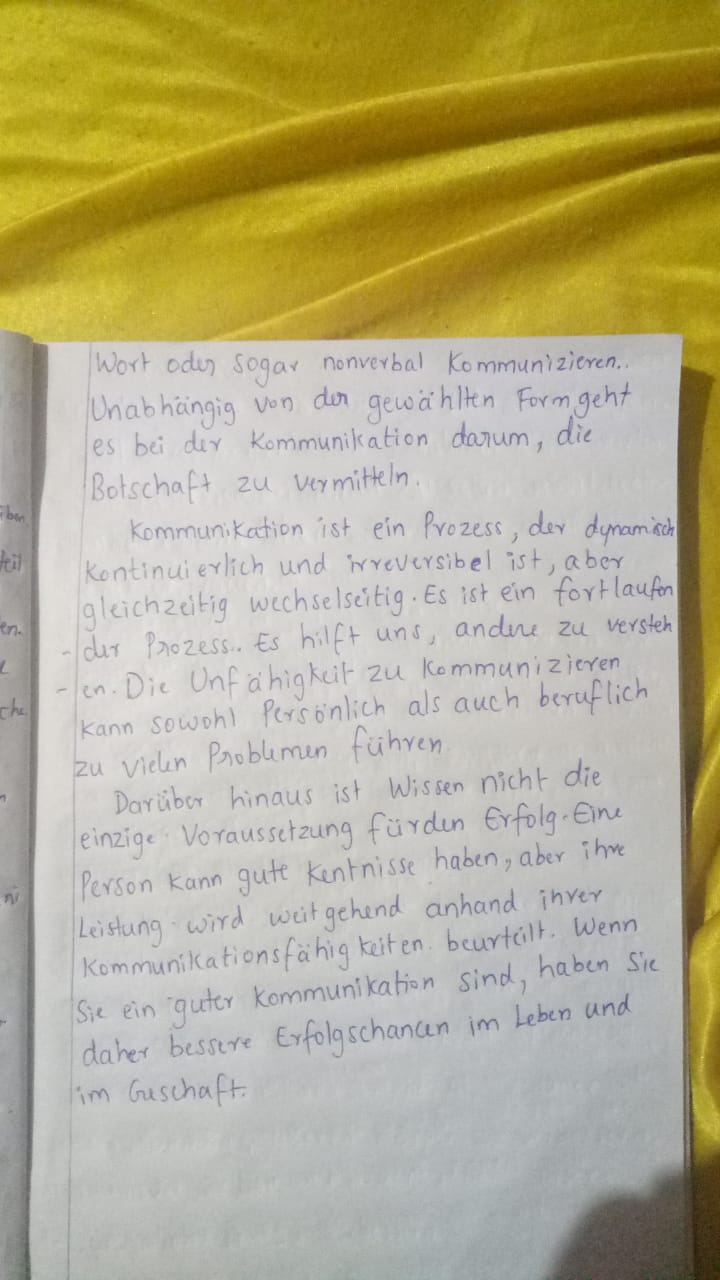 Wort oder sogar nonverbal Kommunizieren..
Unabhängig von der gewählten Form geht
es bei der Kommunikation darum, die
Botschaft zu vermitteln.
Kommunikation ist ein Prozess, der dynamisch
Kontinuierlich und irreversibel ist, aber
gleichzeitig wechselseitig. Es ist ein fortlaufen
- der Prozess.. Es hilft uns, andere zu versteh
- en. Die Unfähigkeit zu Kommunizieren
kann sowohl Persönlich als auch beruflich
zu vielen Problemen führen.
Darüber hinaus ist Wissen nicht die
einzige Voraussetzung für den Erfolg. Eine
Person kann gute Kentnisse haben, aber ihre
Leistung wird weitgehend anhand ihrer
Kommunikationsfähigkeiten. beurteilt. Wenn
Sie ein guter Kommunikation sind, haben Sie
daher bessere Erfolgschancen im Leben und
im Geschaft.